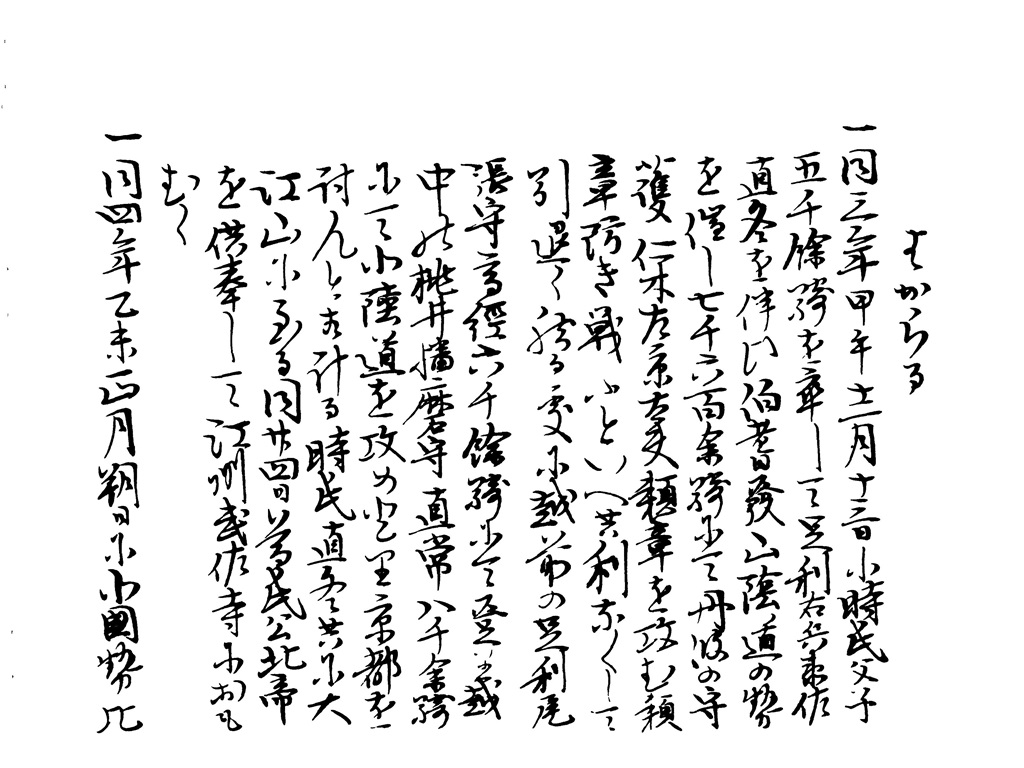 はからる
一同三年甲午十二月十三日小時氏父子
五千餘騎を率して足利右兵衛佐
直冬を伴ひ伯耆發山陰道の勢
を催し七千六百余騎にて丹後の守
護仁木左京大夫頼章を攻む頼
章防き戦ふといへ共利なくして
引退く然る處に越前の足利尾
張守高經六千餘騎にて越
中の桃井播磨守直常八千余騎
にて北陸道を攻め登里京都を
討んとす計る時氏直冬共に大
江山に至る同廿四日尊氏公北帝
を供奉して江州武佐寺に
むく
一同四年乙未正月朔日に小國勢